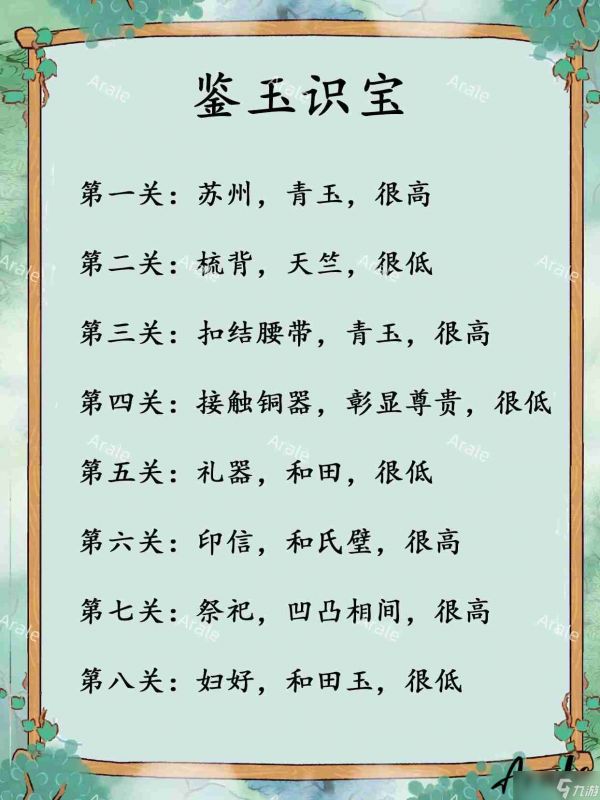 鉴玉识宝
第一关：苏州，青玉，很高
第二关：梳背，天竺，很低
第三关：扣结腰带，青玉，很高
第四关：接触铜器，彰显尊贵，很低
第五关：礼器，和田，很低
第六关：印信，和氏璧，很高
第七关：祭祀，凹凸相间，很高
第八关：妇好，和田玉，很低
Arale
九游